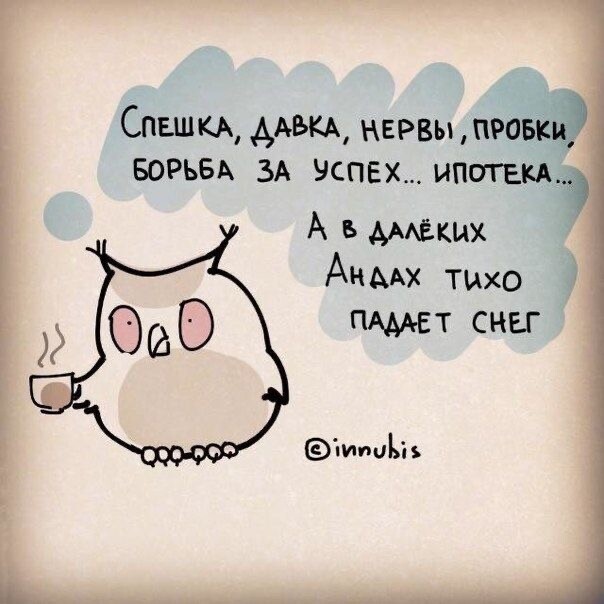 Спешка, давка, нервы, пробки,
борьба за успех... ипотека...
А в далёких
Андах тихо
падает снег
©innubis